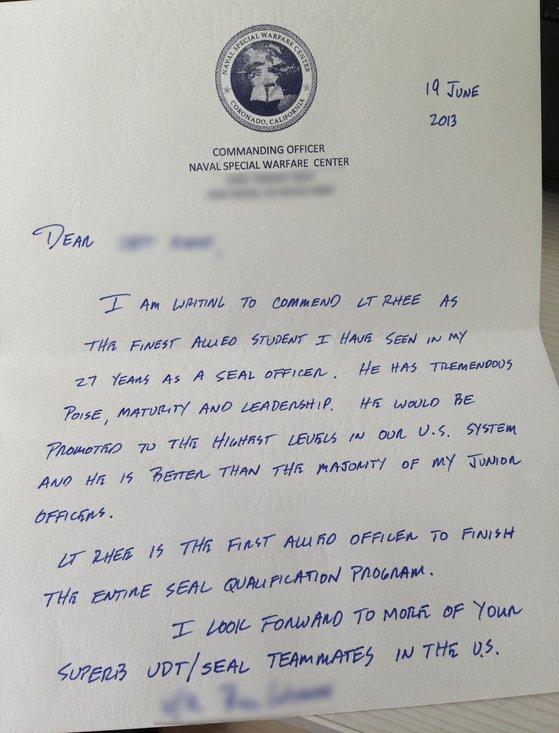 NAVAL SPECIAL WARFARE CENTER
CORONADO, CALIFORNIA
19 JUNE
2013
COMMANDING OFFICER
NAVAL SPECIAL WARFARE CENTER
DEAR
I AM WRITING TO COMMEND LT RHEE AS
THE FINEST ALLIED STUDENT I HAVE SEEN IN MY
27 YEARS AS A SEAL OFFICER. HE HAS TREMENDOUS
POISE, MATURITY AND LEADERSHIP. HE WOULD BE
PROMOTED TO THE HIGHEST LEVELS IN OUR U.S. SYSTEM
AND HE IS BETTER THAN THE MAJORITY OF MY JUNIOR
OFFICERS.
LT RHEE IS THE FIRST ALLIED OFFICER TO FINISH
THE ENTIRE SEAL QUALIFICATION PROGRAM.
I LOOK FORWARD TO MORE OF YOUR
SUPERB UDT/SEAL TEAMMATES IN THE U.S.